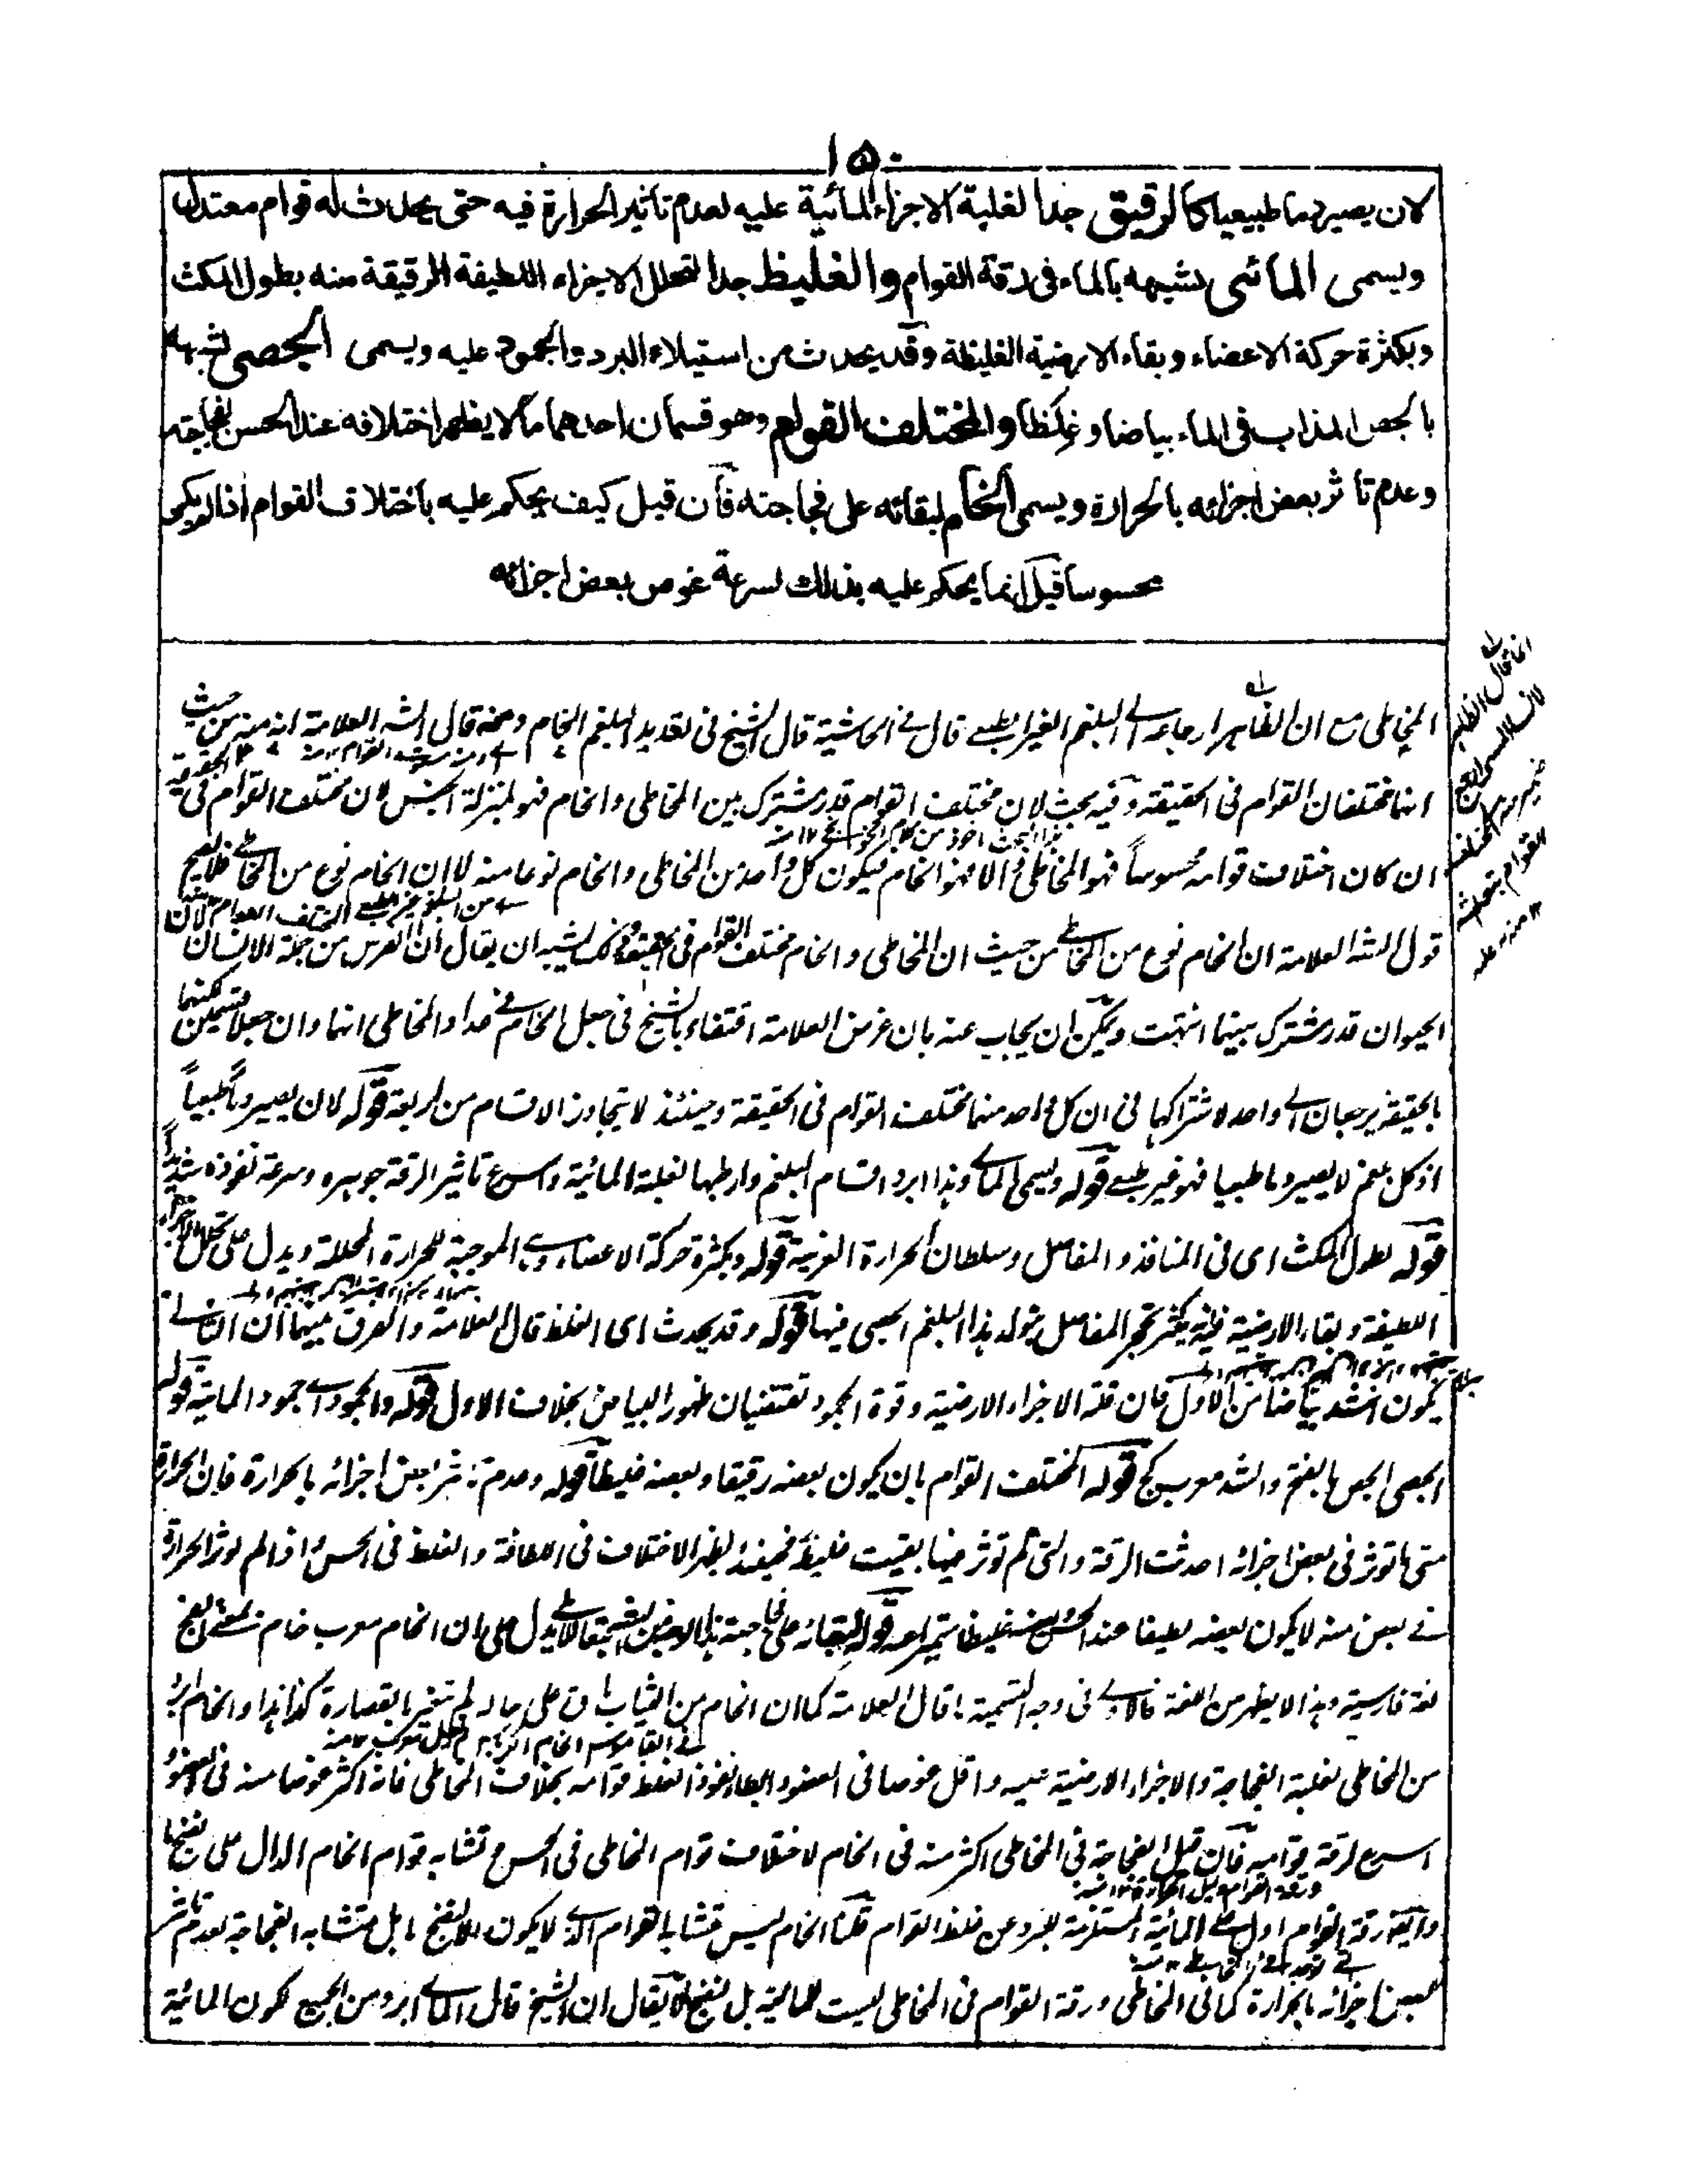 ١٥٠
لان يصير دما طبيعيا كالرقيق جدا لغلبة الاجزاء المائية عليه لعدم تاثير الحرارة فيه حتى يحدث له قوام معتدل
ويسمى المائى لشبهه بالماء فى رقة القوام والغليظ جدا لتحلل الاجزاء اللطيفة الرقيقة منه بطول المكث
وبكثرة حركة الاعضاء وبقاء الارضية الغليظة وقد يحدث من استيلاء البرد والجمود عليه ويسمى الجصى لشبهه
بالجص المذاب فى الماء بياضا وغلظا والمختلف القوام وهو قسمان احدهما ما لا يظهر اختلافه عند الحس لفجاجته
وعدم تاثر بعض اجزائه بالحرارة ويسمى الخام لبقائه على فجاجته فان قيل كيف يحكم عليه باختلاف القوام اذا لم يكن
محسوسا قيل انما يحكم عليه بذلك لسرعة غوص بعض اجزائه
المخاطى مع ان الظاهر ارجاعه الى البلغم الغير الطبيعى قال فى الحاشية قال الشيخ فى تعديد البلغم الخام ومنه قال الشه العلامة انه منه من حيث
انهما مختلفان القوام فى الحقيقة وفيه بحث لان مختلف القوام قدر مشترك بين المخاطى والخام فهو بمنزلة الجنس لان مختلف القوام فى الحقيقة
ان كان اختلاف قوامه محسوساً فهو المخاطى والا فهو الخام فيكون كل واحد من المخاطى والخام نوعا منه لا ان الخام نوع من المخاطى فلا يصح
قول الشه العلامة ان الخام نوع من المخاطى من حيث ان المخاطى والخام مختلف القوام فى الحقيقة وذلك يشبه ان يقال ان الفرس من جملة الانسان لان
الحيوان قدر مشترك بينهما انتهت ويمكن ان يجاب عنه بان غرض العلامة اقتفاء بالشيخ فى جعل الخام فى عداد المخاطى انهما وان جعلا قسمين لكنهما
بالحقيقة يرجعان الى واحد لاشتراكهما فى ان كل واحد منهما مختلف القوام فى الحقيقة وحينئذ لا يتجاوز الاقسام من اربعة قوله لان يصير دماً طبيعياً
اذ كل بلغم لا يصير دما طبيعيا فهو غير طبيعى قوله ويسمى المائى وهذا ابرد اقسام البلغم وارطبها لغلبة المائية واسرع تاثيرا لرقة جوهره وسرعة نفوذه
قوله لطول المكث اى فى المنافذ والمفاصل وسلطان الحرارة الغريبة قوله وبكثرة حركة الاعضاء وهى الموجبة للحرارة المحللة ويدل على تحلل الاجزاء
اللطيفة وبقاء الارضية فيه كثرة تحجر المفاصل بتولد هذا البلغم الجصى فيها قوله وقد يحدث اى الغلظ قال العلامة والفرق بينهما ان الثانى
يكون اشد بياضا من الاول فان قلة الاجزاء الارضية وقوة الجمود تقتضيان ظهور البياض بخلاف الاول قوله والجمود اى جمود المائية قوله
الجصى الجص بالفتح والشد معرب كچ قوله المختلف القوام بان يكون بعضه رقيقا وبعضه غليظا قوله وعدم تاثر بعض اجزائه بالحرارة فان الحرارة
متى ما توثر فى بعض اجزائه احدثت الرقة والتى لم توثر فيها بقيت غليظة فحينئذ يظهر الاختلاف فى اللطافة والغلظ فى الحس واذا لم توثر الحرارة
فى بعض منه لا يكون بعضه لطيفا عند الحس وبعضه غليظا متميزا عنه قوله لبقائه على فجاجته يدل على ان الخام معرب خام
لغة فارسية وهذا لا يظهر من اللغة فالاولى فى وجه التسمية ما قال العلامة كما ان الخام من الثياب باق على حاله لم يتغير بالقصارة كذا هذا والخام ابرد
من المخاطى لغلبة الفجاجة والاجزاء الارضية عليه واقل غوصا فى العضو وابطأ نفوذا لغلظ قوامه بخلاف المخاطى فانه اكثر غوصا منه فى العضو
اسرع لرقة قوامه فان قيل الفجاجة فى المخاطى اكثر منه فى الخام لاختلاف قوام المخاطى فى الحس وتشابه قوام الخام الدال على نضجها
وايضا رقة القوام اول على المائية المستلزمة للبرد عن غلظ القوام قلنا الخام ليس متشابه القوام الذى لا يكون الا للنضج بل متشابه الفجاجة لعدم تاثر
بعض اجزائه بالحرارة كما فى المخاطى ورقة القوام فى المخاطى ليست للمائية بل للنضج لا يقال ان الشيخ قال المائى ابرد من الجميع لكون المائية